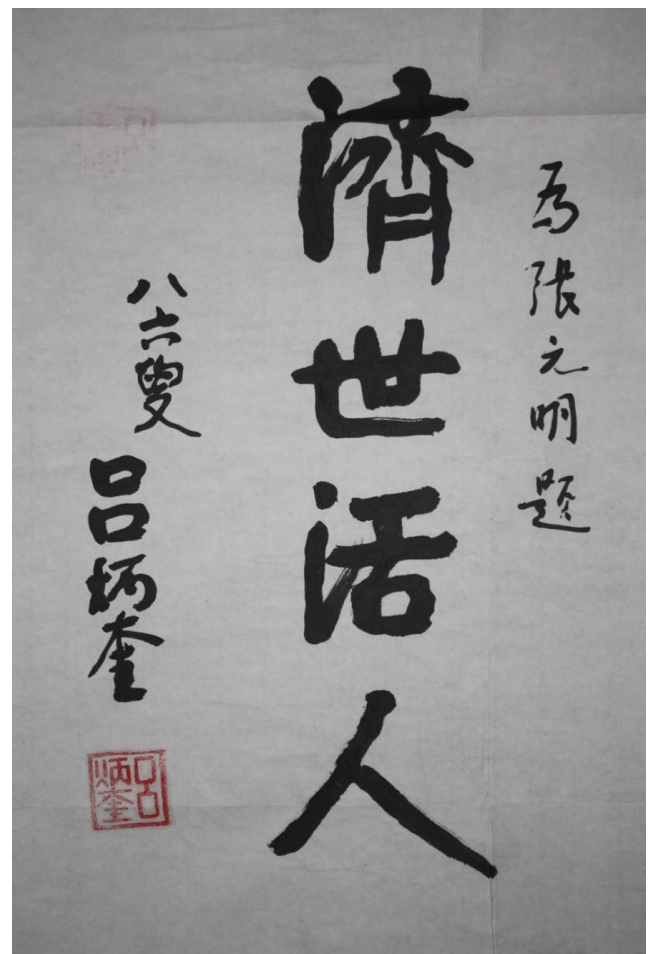 為張元明題
濟世活人
八六叟
吕炳奎
吕炳奎